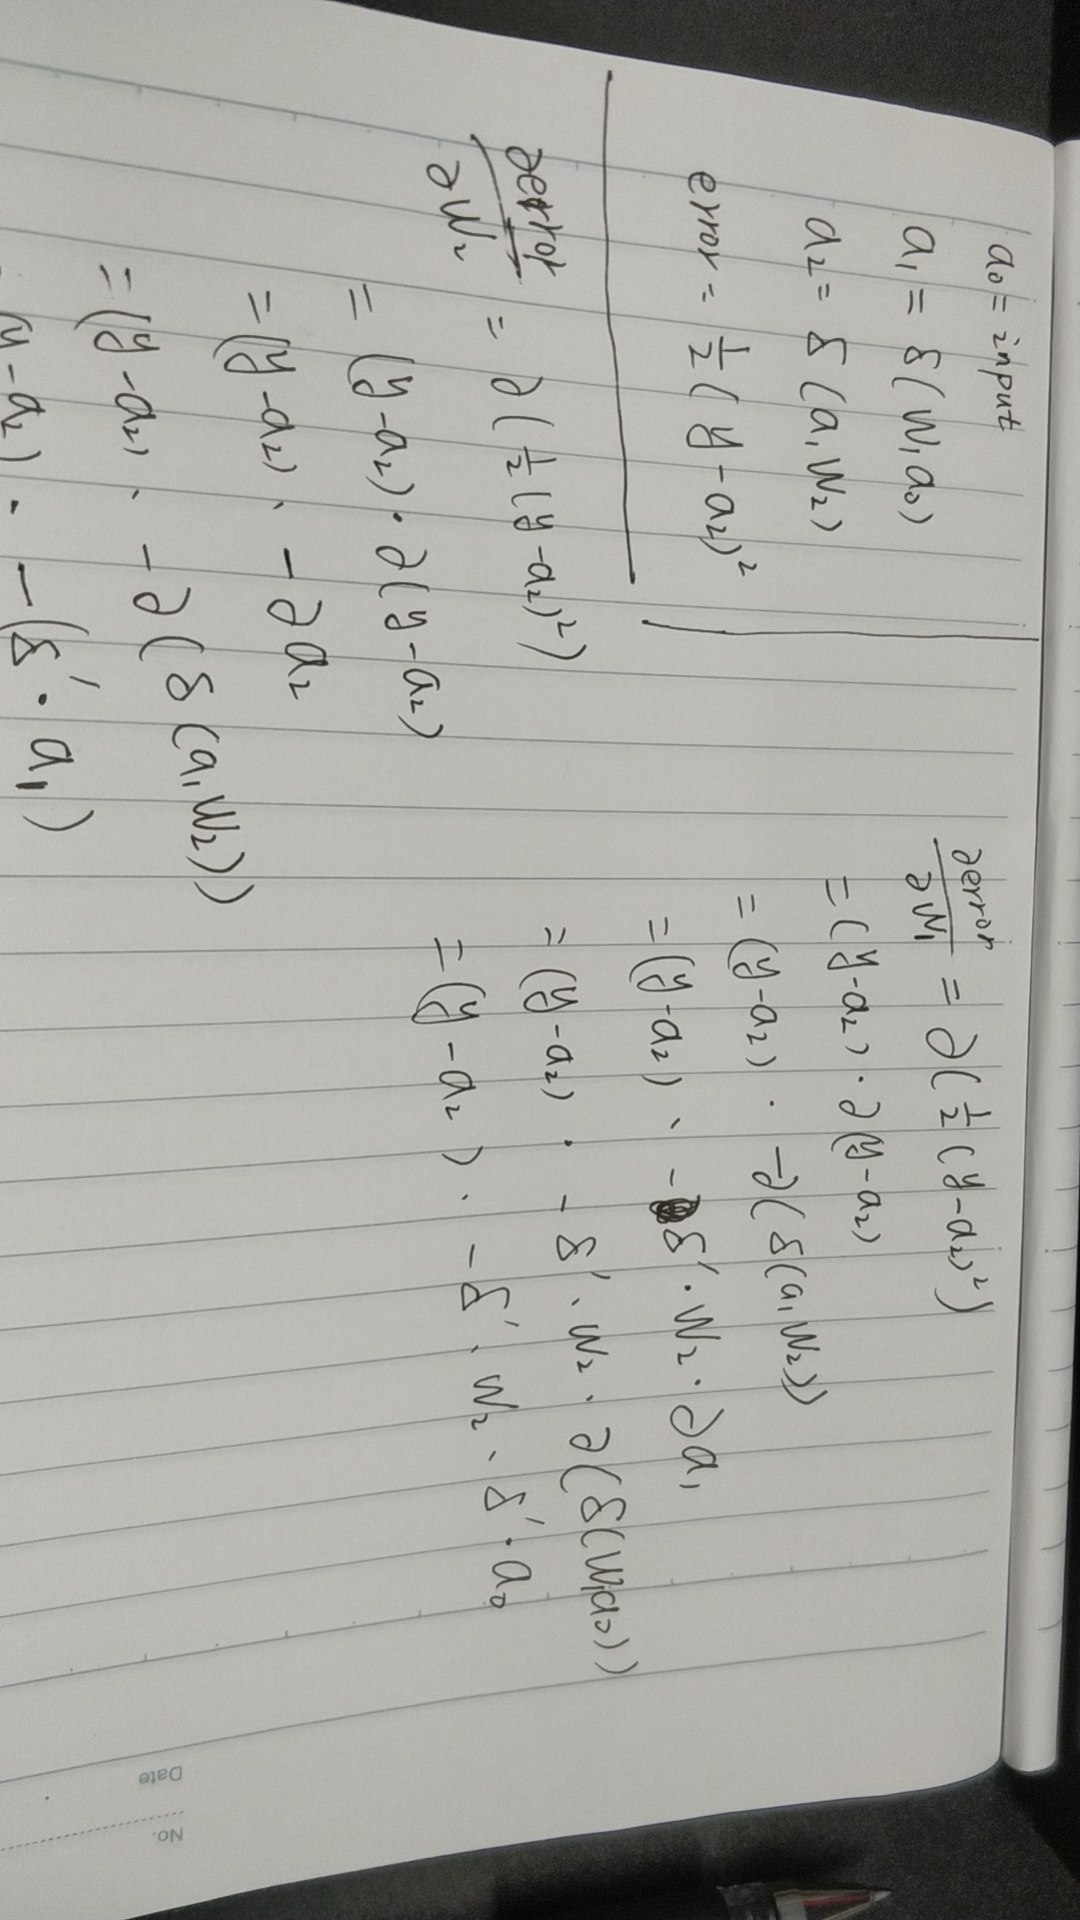 a₀ = input
a₁ = δ(W₁a₀)
a₂ = δ(a₁W₂)
error = 1/2(y-a₂)²
∂error/∂W₂ = ∂(1/2(y-a₂)²)
= (y-a₂)·∂(y-a₂)
= (y-a₂)·-∂a₂
= (y-a₂)·-∂(δ(a₁W₂))
(y-a₂)·-(δ'·a₁)
∂error/∂W₁ = ∂(1/2(y-a₂)²)
= (y-a₂)·∂(y-a₂)
= (y-a₂)·-∂(δ(a₁W₂))
= (y-a₂)·-δ'·W₂·∂a₁
= (y-a₂)·-δ'·W₂·∂(δ(W₁a₀))
= (y-a₂)·-δ'·W₂·δ'·a₀
No.
Date